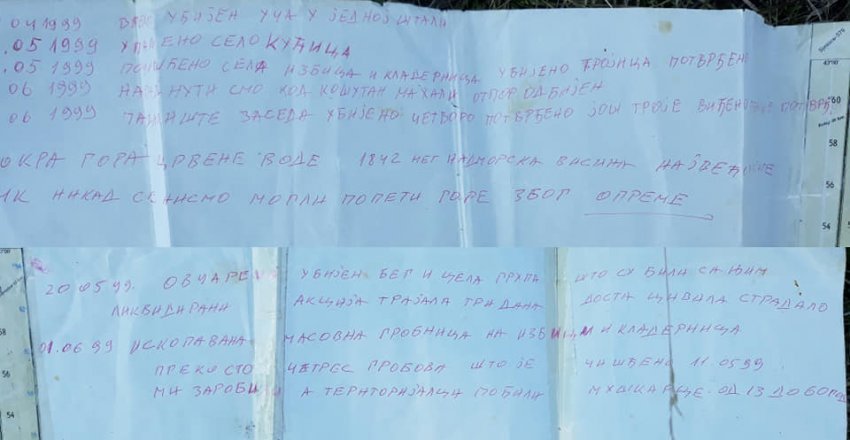 04 1999 УБИЈЕН УЧА У ЈЕДНОЈ ШТАЛИ
.05 1999 СЕЛО КУЋИЦА
.05 1999 СЕЛА ИЗБИЦА И КЛАДЕРНИЦА УБИЈЕНО ТРОЈИЦА ПОТВРЂЕНО
06 1999 СМО КОД КОШУТАН МАХАЛИ ОТПОР ОДБИЈЕН
06 1999 ЗАСЕДА УБИЈЕНО ЧЕТВОРО ПОТВРЂЕНО ЈОШ ТРОЈЕ
ОКРА ГОРА ЦРВЕНЕ ВОДЕ 1842 НАДМОРСКА ВИСИНА
НИКАД СЕ НИСМО МОГЛИ ПОПЕТИ ГОРЕ ЗБОГ ОПРЕМЕ
60
58
56
54
20 05 99. УБИЈЕН БЕГ И ЦЕЛА ГРУПА ШТО СУ БИЛИ СА ЊИМ
ЛИКВИДИРАНИ АКЦИЈА ТРАЈАЛА ТРИ ДАНА ДОСТА ЦИВИЛА СТРАДАЛО
01.06 99 ИСКОПАВАНА МАСОВНА ГРОБНИЦА НА И КЛАДЕРНИЦА
ПРЕКО СТО ЧЕТРЕС ГРОБОВА ШТО ЈЕ ЧИШЂЕНО 11.05 99
МИ А ТЕРИТОРИЈАЛЦИ ПОБИЛИ МУШКАРЦЕ. ОД 13 ДО 60
58
56
54